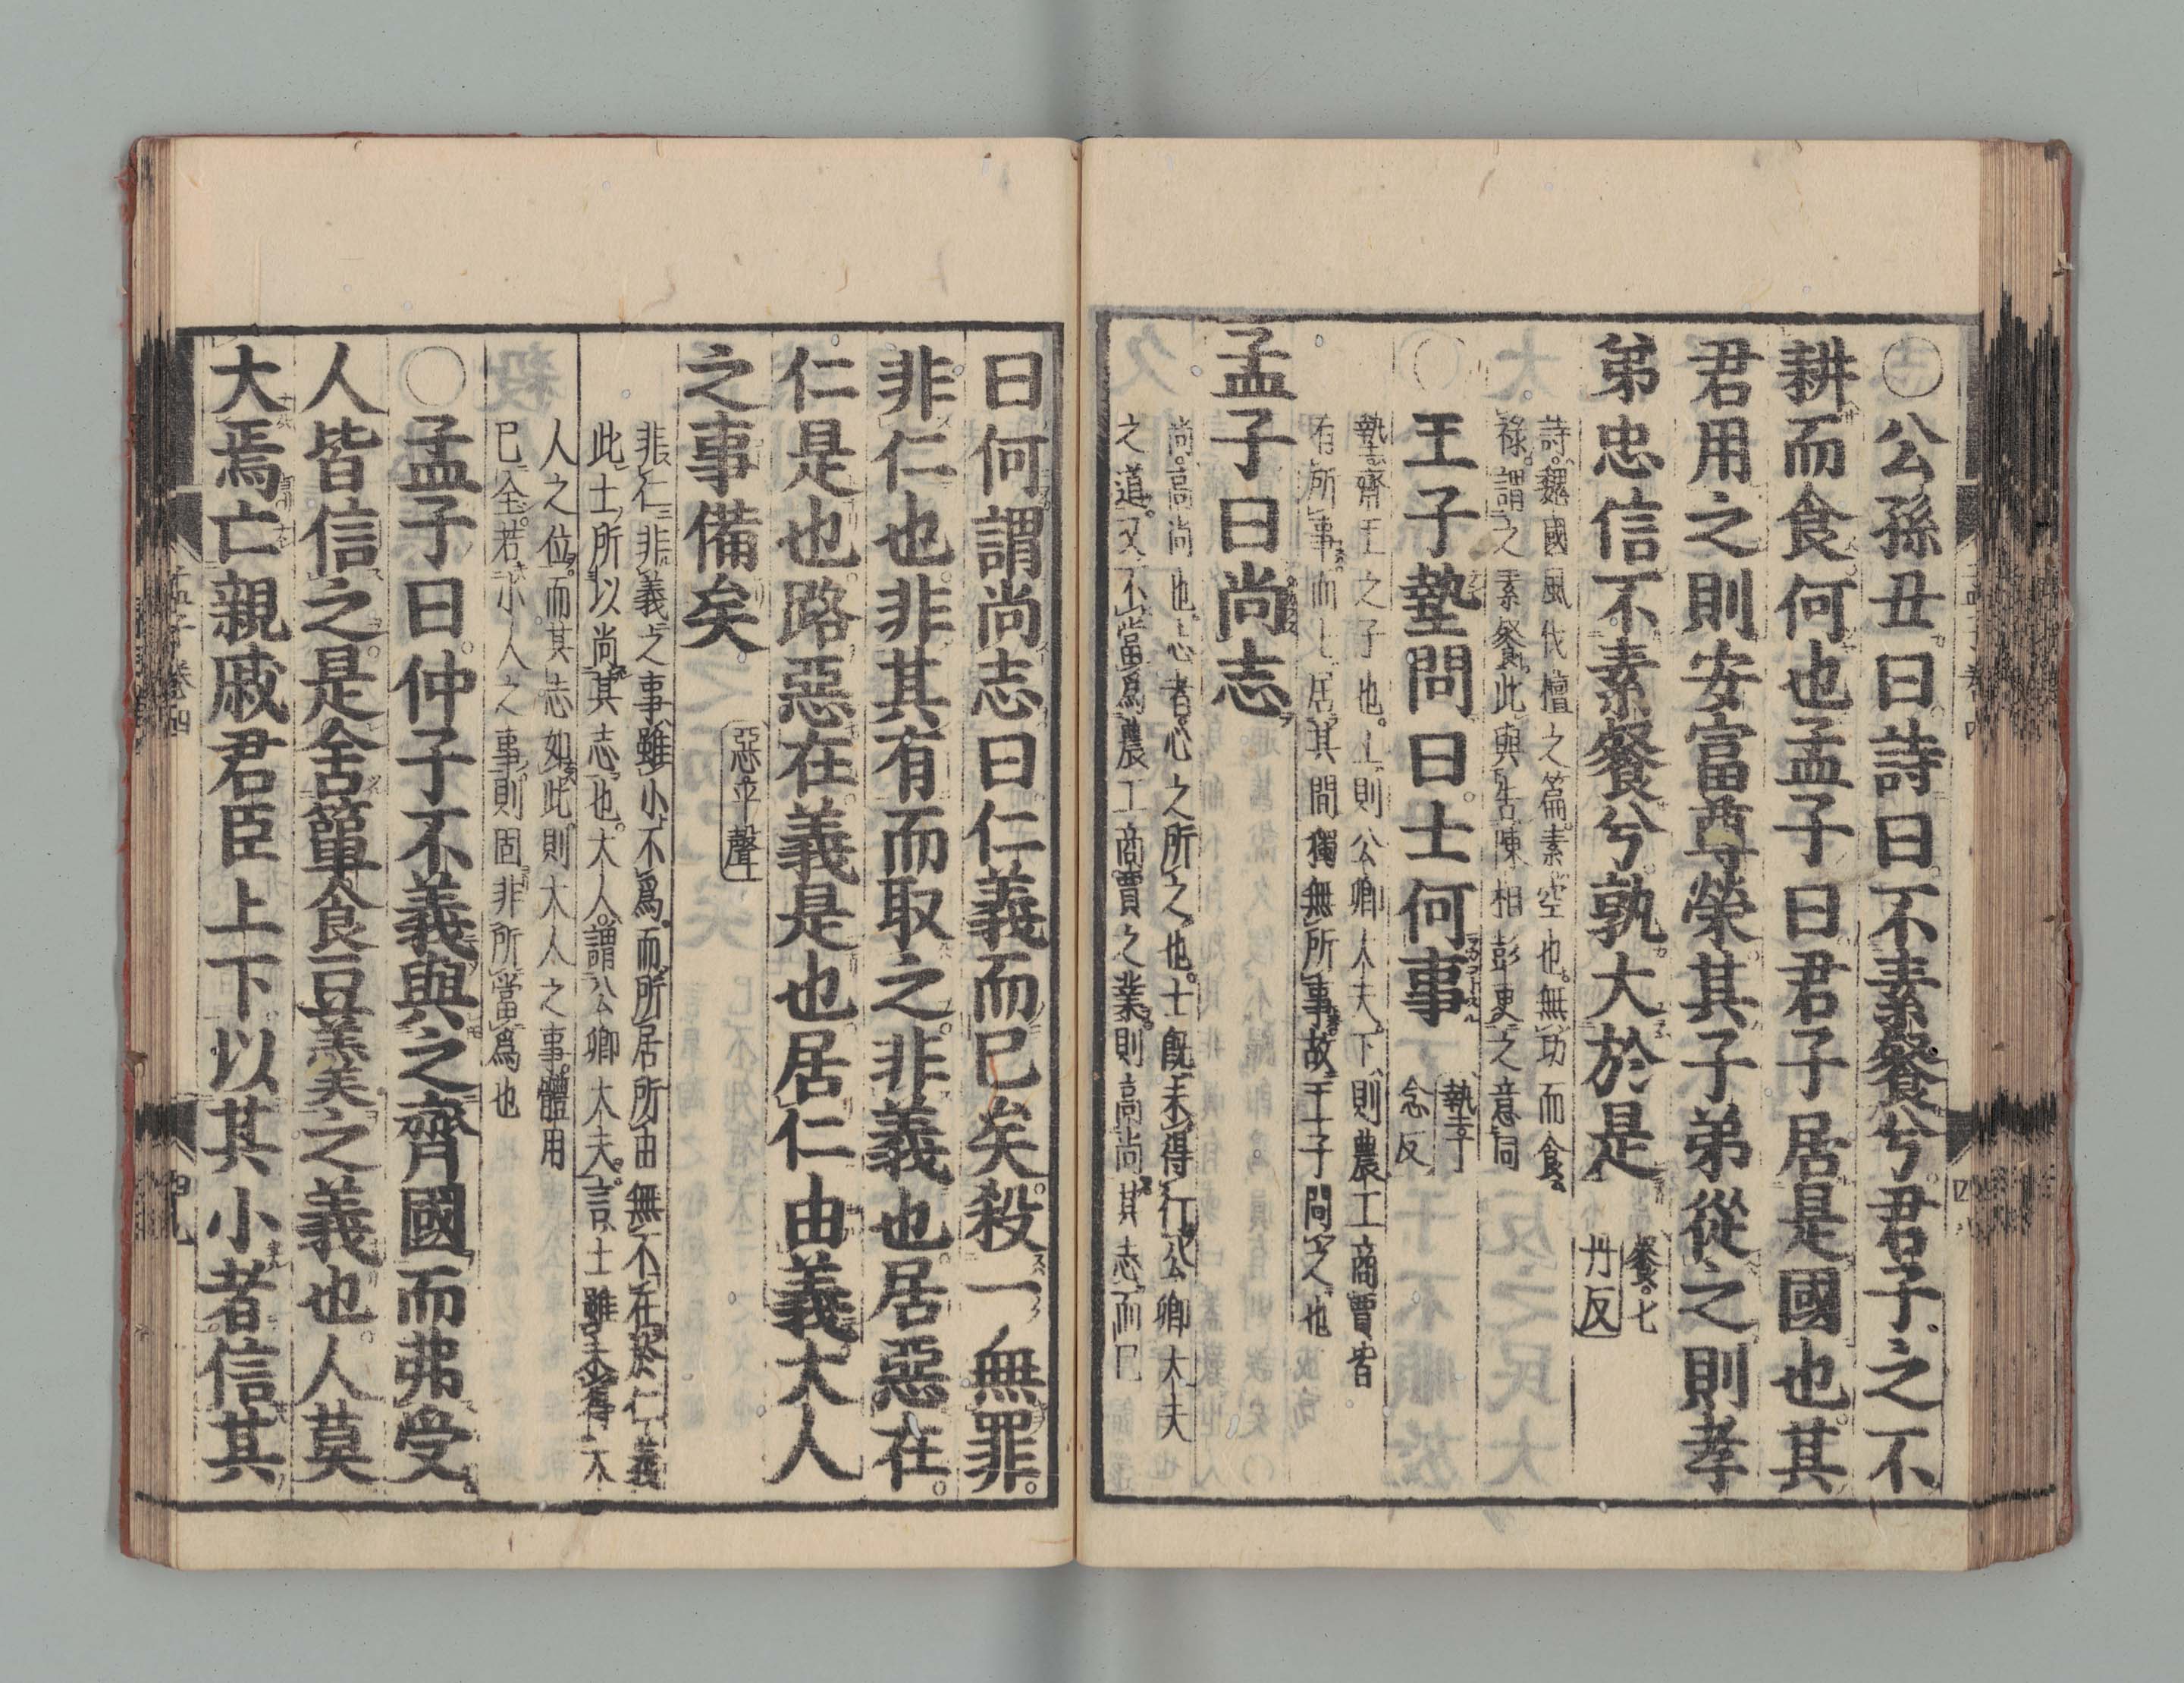 ○公孫丑曰詩曰不素餐兮君子之不
耕而食何也孟子曰君子居是國也其
君用之則安富尊榮其子弟從之則孝
弟忠信不素餐兮孰大於是
餐七
丹反
詩魏國風伐檀之篇素空也無功而食
祿謂之素餐此與告陳相彭更之意同
○王子墊問曰士何事
墊丁
念反
墊齊王之子也上則公卿大夫下則農工商賈皆
有所事而士居其間獨無所事故王子問之也
孟子曰尚志
尚高尚也志者心之所之也士既未得行公卿大夫
之道又不當爲農工商賈之業則高尚其志而已
曰何謂尚志曰仁義而已矣殺一無罪
非仁也非其有而取之非義也居惡在
仁是也路惡在義是也居仁由義大人
之事備矣
惡平聲
非仁非義之事雖小不爲而所居所由無不在於仁義
此士所以尚其志也大人謂公卿大夫言士雖未得大
人之位而其志如此則大人之事體用
已全若小人之事則固非所當爲也
○孟子曰仲子不義與之齊國而弗受
人皆信之是舍簞食豆羹之義也人莫
大焉亡親戚君臣上下以其小者信其
孟子卷四
四九